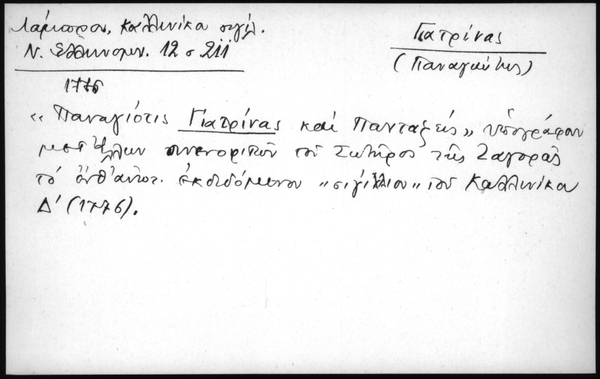 Λάμπρου, Καλλινίκα σιγίλ.
Ν. Ελληνομν. 12 σ 211
Γιατρίνας
(Παναγιώτης)
1776
"Παναγιότις Γιατρίνας καὶ Πανταζῆς" ὑπογράφουν
μετ' ἄλλων συνενοριτῶν τοῦ Σωτῆρος τῆς Ζαγορᾶς
τὸ ἐκδιδόμενον "σιγίλλιον" τοῦ Καλλινίκου
Δ' (1776).